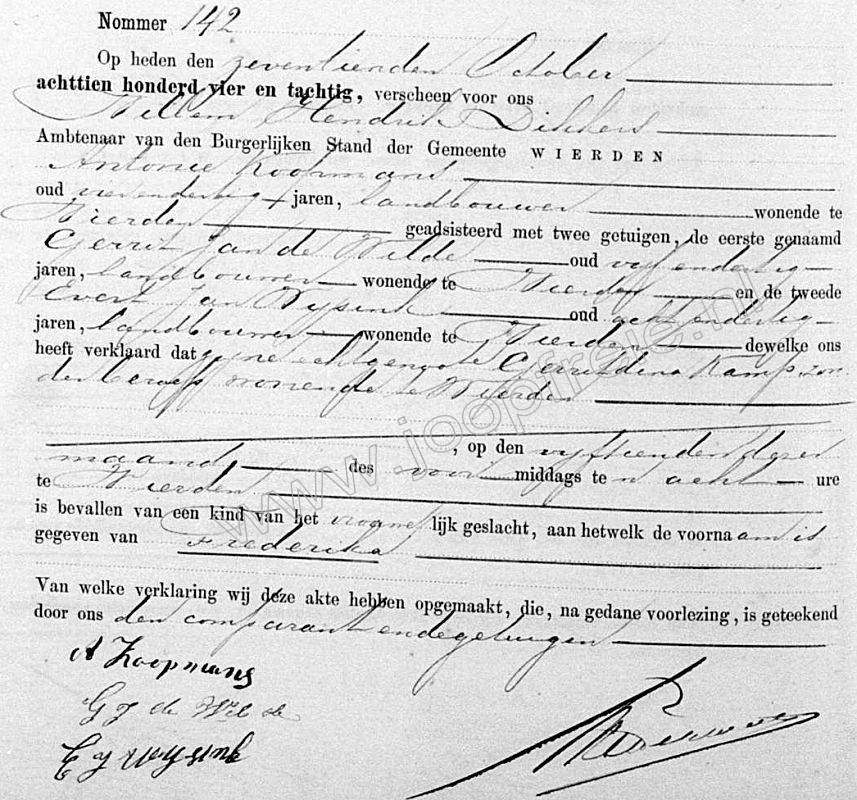 Nommer 142
Op heden den zeventienden October
achttien honderd vier en tachtig, verscheen voor ons
Willem Hendrik Dikkers
Ambtenaar van den Burgerlijken Stand der Gemeente WIERDEN
Antonie Koopmans
oud vierendertig jaren, landbouwer wonende te
Wierden geadsisteerd met twee getuigen, de eerste genaamd
Gerrit Jan de Wilde oud vijfendertig
jaren, landbouwer wonende te Wierden en de tweede
Evert Jan Wysink oud achtendertig
jaren, landbouwer wonende te Wierden dewelke ons
heeft verklaard dat zijne echtgenoote Gerritdina Kamp, zon
der beroep wonende te Wierden
maand des voor middags te n acht ure
, op den vyftienden dezer
te Wierden
is bevallen van een kind van het vrouwe lijk geslacht, aan hetwelk de voorna am is
gegeven van Frederika
Van welke verklaring wij deze akte hebben opgemaakt, die, na gedane voorlezing, is geteekend
door ons den comparant en de getuigen
A Koopmans
G J de Wilde
E J Wysink
www.joopfreie.nl